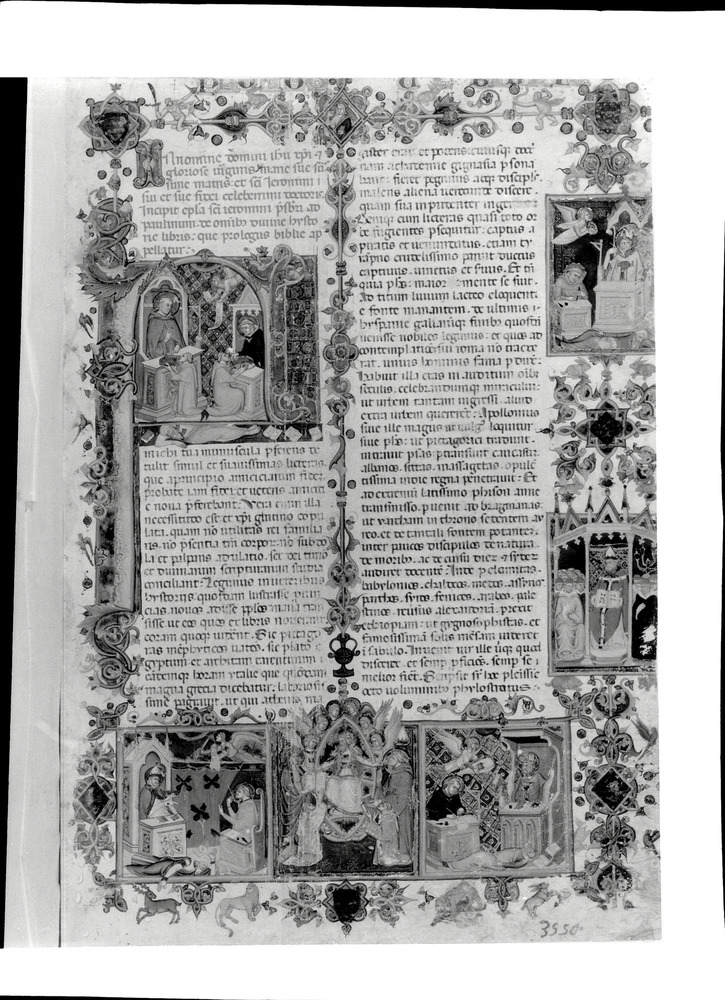 In nomine domini ihu xpi ⁊
gloriose virginis marie sue
sime matris et sci Jeronimi
sui et sue fidei celeberrimi doctoris.
Incipit epla sci ieronimi psbri ad
paulinum de omibus divine hysto
rie libris. que prologus biblie ap
pellatur.
michi tua munuscula pferens de
tulit simul et suavissimas licteras.
que a principio amiciciarum fidem
probate iam fidei et veteris amicicie
e nova preferebant. Vera enim illa
necessitudo est et xpi glutino copu
lata. quam no utilitas rei familia
ris. no psentia tm corporum. no subdo
la et palpans adulatio. sed dei timor
et divinarum scripturarum studia
conciliant. Legimus in veteribus
hystoriis. quosdam lustrasse provin
cias. novos adisse pplos. maria tran
sisse ut eos quos ex libris noverant
coram quoque viderent. Sic pictago
ras memphyticos vates. sic plato e
gyptum et architam tarentinum
eandemque horam ytalie que quondam
magna grecia dicebatur. laboriosis
sime peragravit. ut qui athenis ma
gister erat et potens. cuiusque doct
nam achademie gignasia psona
bant. fieret pegrinus atque discipls.
malens aliena verecunde discere.
quam sua impudenter ingerere.
Deniq cum licteras quasi toto or
be fugientes psequitur. captus a
pyratis et venundatus. etiam ty
rapno crudelissimo paruit. ductus
captivus. vinctus et servus. Et tn
quia phs. maior ementе se fuit.
Ad titum livium lacteo eloquentie
fonte manantem. de ultimis
hyspanie galliarumque finibus quosdam
venisse nobiles legimus. et quos ad
contemplationem sui roma no traxe
rat. unius hominis fama pduxit.
Habuit illa etas in auditum omibus
seculis. celebrandumque miraculum.
ut urbem tantam ingressi. aliud
extra urbem quererent. Apollonius
sive ille magus ut vulgus loquitur.
sive phs. ut pictagorici tradunt.
intravit psas. ptransivit caucasum.
albanos. scitas. massagetas. opulen
tissima indie regna penetravit. Et
ad extremum latissimo phison amne
transmisso. pvenit ad bragmanas.
ut yarcham in throno sedentem au
reo. et de tantali fontem potantem.
inter paucos discipulos de natura.
de moribus. ac de cursu dierum et syderum
audiret docente. Inde p elamitas.
babylonios. chaldeos. medos. assyrios
parthos. syros. fenices. arabes. pale
stinos. reversus alexandriam. prexit
ethyopiam. ut gygnosophistas. et
famosissimam solis mensam videret
i sabulo. Invenit vir ille ubique quod
disceret. et semp pficiens. semp se
melior fieret. Scripsit super hoc plenissime
octo voluminibus phylostratus.
3550